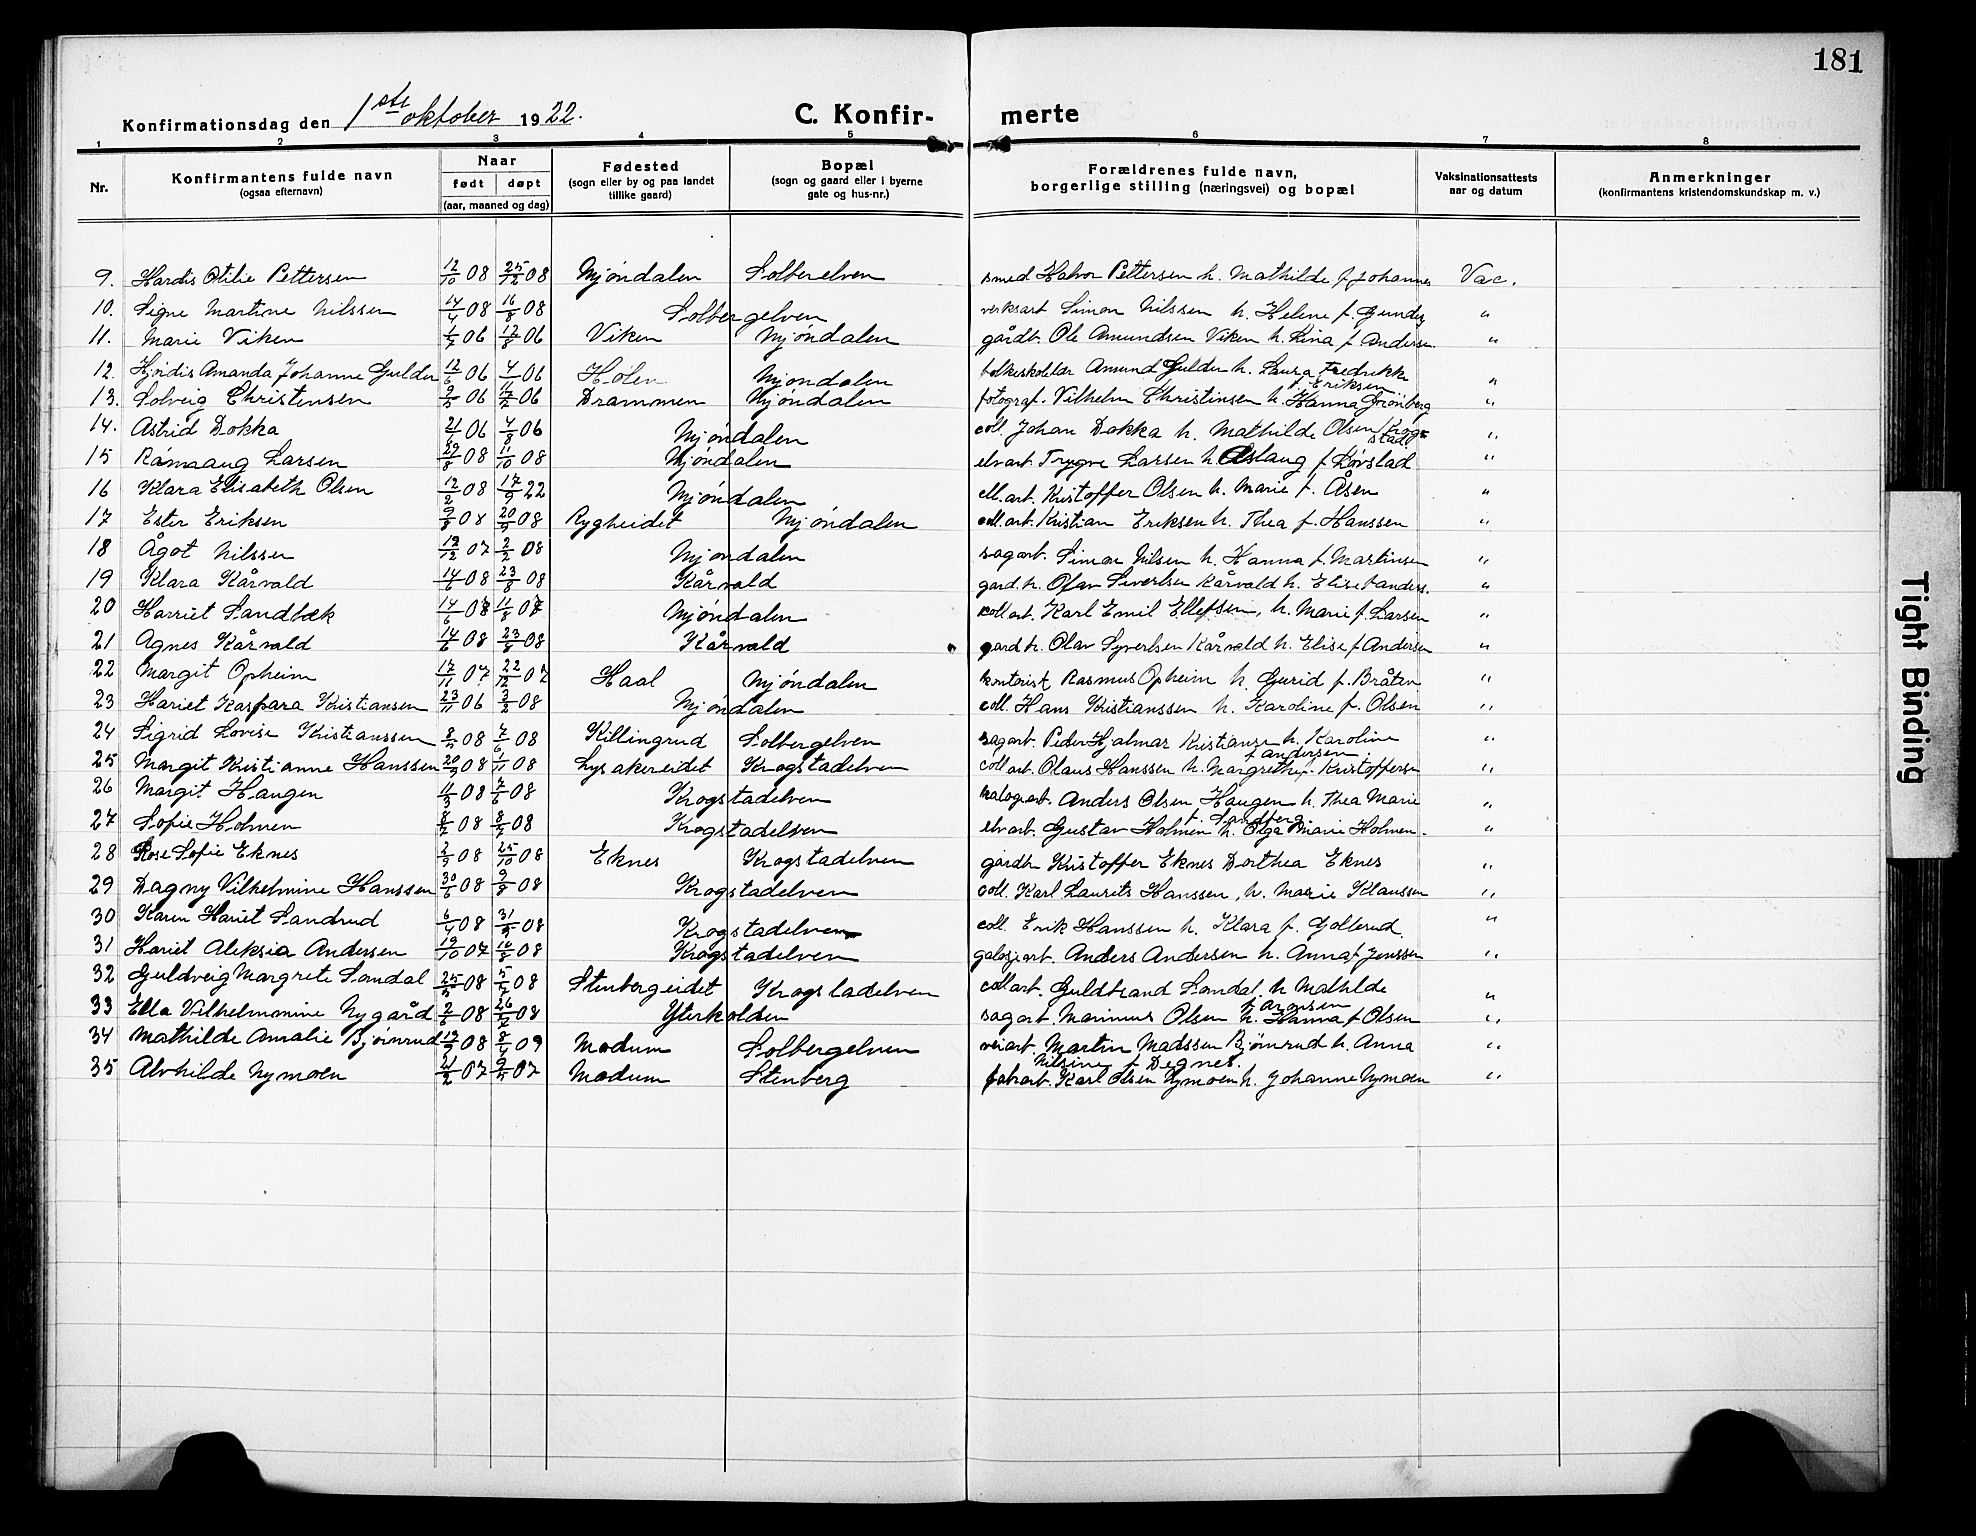 181
Konfirmationsdag den 1ste oktober 1922.
C. Konfir-merte
1 2 3 4 5 6 7 8
Nr. Konfirmantens fulde navn (ogsaa efternavn) Naar født døpt (aar, maaned og dag) Fødested (sogn eller by og paa landet tillike gaard) Bopæl (sogn og gaard eller i byerne gate og hus-nr.) Forældrenes fulde navn, borgerlige stilling (næringsvei) og bopæl Vaksinationsattests aar og datum Anmerkninger (konfirmantens kristendomskundskap m. v.)
9. Hardis Otilie Pettersen 12/10 08 25/12 08 Mjøndalen Solberelven smed Halvor Pettersen h. Mathilde f Johannes Vac.
10. Signe Martine Nilssen 14/4 08 16/8 08 Solbergelven verksart Simon Nilssen h. Helene f. Gunder "
11. Marie Viken 06 12/8 06 Viken Mjøndalen gårdb. Ole Amundsen Viken h. Lina f Andersen. "
12. Hjørdis Amanda Johanne Gulden 12/6 06 06 Holen Mjøndalen Amund Gulden h. Laura Fredrikke f. Eriksen "
13. Solveig Christensen 06 06 Drammen Mjøndalen fotograf. Vilhelm Christinsen h. Hanna Grønberg "
14. Astrid Dokka 21/6 06 4/8 06 Mjøndalen coll. Johan Dokka h. Mathilde Olsen Krogstad "
15 Larsen 29/8 08 11/10 08 Mjøndalen elvart Trygve Larsen h Aslaug f Løvstad "
16 Klara Elisabeth Olsen 12/2 08 17/9 22 Mjøndalen ell.art. Kristoffer Olsen h. Marie f. Åsen "
17 Ester Eriksen 08 08 Rygheidet Mjøndalen coll.art. Kristian Eriksen h. Thea f. Hanssen "
18 Ågot Nilssen 19/12 07 2/2 08 Mjøndalen sagart. Simon Nilsen h. Hanna f. Martinsen "
19 Klara Kårvald 14/6 08 23/8 08 Kårvald gard.br. Olav Siverlsen Kårvald h. Elise f anders. "
20 Harriet Sandbæk 14/6 07 11/8 07 Mjøndalen coll art. Karl Emil Ellefsen, h. Marie f. Larsen "
21 Agnes Kårvald 14/6 08 23/8 08 Kårvald gardbr. Olav Syvertsen Kårvald h. Elise f Andersen "
22 Margit Opheim 17/11 07 22/12 07 Haal Mjøndalen kontorist Rasmus Opheim h. Gurid f. Bråten "
23 Hariet Kaspara Kristiansen 23/11 06 3/2 08 Mjøndalen coll. Hans Kristianssen h. Karoline f. Olsen "
24 Sigrid Lovise Kristianssen 08 7/6 08 Killingrud Solbergelven sagart. Peder Hjalmar Kristianse h. Karoline f andersen "
25 Margit Kristianne Hanssen 20/9 08 1/11 08 Lysakereidet Krogstadelven coll art. Olaus Hanssen h. Margrethe f. Kristoffersen "
26 Margit Haugen 11/3 08 7/6 08 Krogstadelven art. Anders Olsen Haugen h. Thea Marie f. Sandberg "
27 Sofie Holmen 08 08 Krogstadelven elvart. Gustav Holmen h. Olga Marie Holmen. "
28 Rose Sofie Eknes 08 25/10 08 Eknes Krogstadelven gårdb Kristoffer Eknes Dorthea Eknes "
29 Dagny Vilhelmine Hanssen 30/6 08 08 Krogstadelven coll. Karl Laurits Hanssen, h. Marie Klaussen "
30 Karen Hariet Sandrud 6/4 08 31/5 08 Krogstadelven coll. Erik Hanssen h. Klara f. Gollerud. "
31 Hariet Aleksia Andersen 19/10 07 16/8 08 Krogstadelven galosjart. Anders Andersen h. Anna f Jenssen "
32 Guldveig Margrete Sandal 25/5 08 08 Stenbergeidet Krogstadelven coll art. Guldbrand Sandal, h Mathilde f aronsen "
33 Ella Vilhelmmine Nygård 2/6 08 26/7 08 Yterkolden sagart. Marinus Olsen h. Hanna f Olsen "
34 Mathilde Amalie Bjørnrud 19/9 08 09 Modum Solbergelven veiart. Martin Madssen Bjørnrud h. Anna Nilsine f Degnes. "
35 Alvhilde Nymoen 21/2 07 9/5 07 Modum Stenberg fabrart. Karl Olsen Nymoen h. Johanne Nymoen "
Tight Binding